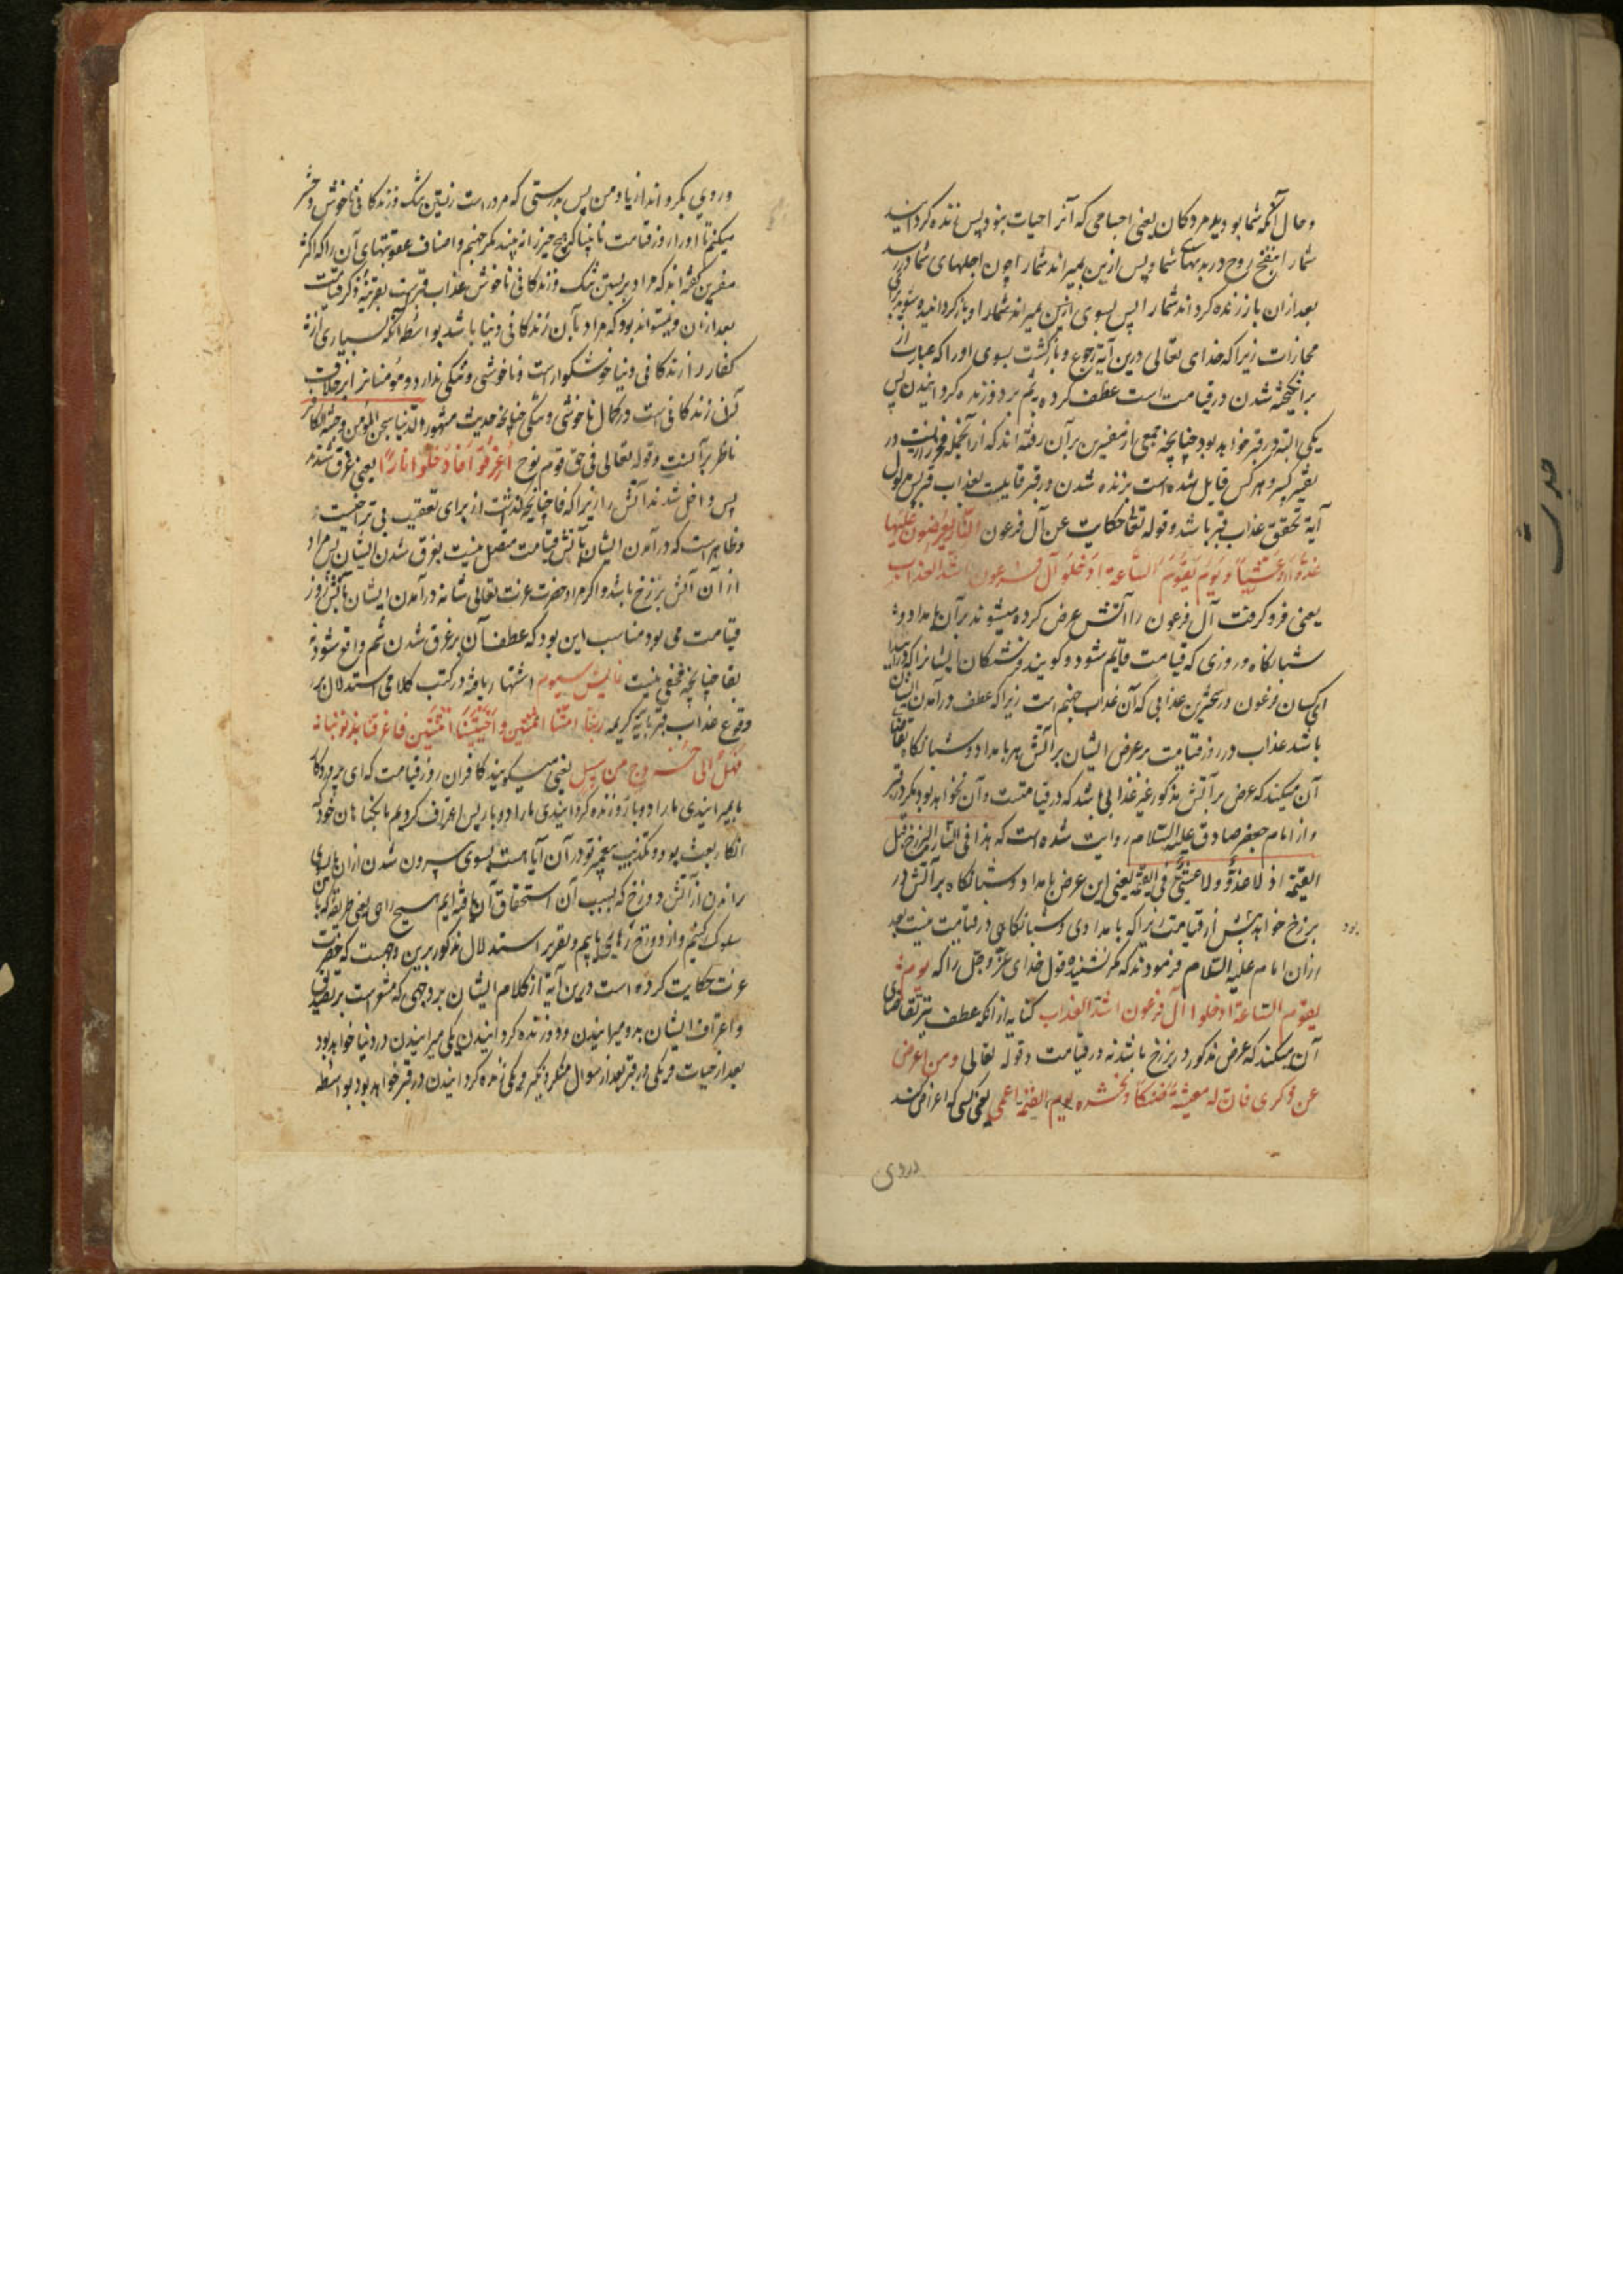 و حال آنکه شما بودید مردکان یعنی اجسامی که آنرا حیات نبود پس زنده کردانید
شما را بنفخ روح در بدنهای شما و پس ازین بمیراند شما را چون اجلهای شما در رسد
بعد ازان باز زنده کرداند شما را پس بسوی او بازکردانیده شوید برای
مجازات زیرا که خدای تعالی درین آیه رجوع و بازکشت بسوی او را که عبارت از
برانکیخته شدن در قیامت است عطف کرده بثم بر دو زنده کردانیدن پس
یکی البته در قبر خواهد بود چنانچه جمعی از مفسرین بر آن رفته اند که از آنجمله فخر رازیست در
تفسیر کبیر و هر کس قایل شده است بزنده شدن در قبر قایلست بعذاب قبر پس مدلول
آیه تحقق عذاب قبر باشد و قوله تعالی حکایت عن آل فرعون النار یعرضون علیها
غدوا و عشیا و یوم یقوم الساعة ادخلوا آل فرعون اشد العذاب
یعنی فرو کرفت آل فرعون را آتش عرض کرده میشوند بر آن بامداد و
شبانکاه و روزی که قیامت قایم شود و کویند فرشتکان ایشانرا که درآیید
ای کسان فرعون در سختترین عذابی که آن عذاب جهنم است زیرا که عطف درآمدن ایشان
باشد عذاب در روز قیامت بر عرض ایشان بر آتش هر بامداد و شبانکاه تقاضای
آن میکند که عرض بر آتش مذکور غیر عذابی باشد که در قیامتست و آن نخواهد بود مکر در قبر
و از امام جعفر صادق علیه السلام روایت شده است که هذا فی النار البرزخ قبل
القیمة اذ لا غدو و لا عشی فی القیمة یعنی این عرض بامداد و شبانکاه بر آتش در
برزخ خواهد پیش از قیامت زیرا که بامدادی و شبانکاهی در قیامت نیست بعد
بود
ازان امام علیه السلام فرمودند که مکر نشنیده قول خدای عز و جل را که یوم
یقوم الساعة ادخلوا آل فرعون اشد العذاب کنایه از انکه عطف نیز تقاضای
آن میکند که عرض مذکور در برزخ باشد نه در قیامت و قوله تعالی و من اعرض
عن ذکری فان له معیشة ضنکا و نحشره یوم القیمة اعمی یعنی کسی که اعراض کند
دروی
و روی بکرداند از یاد من پس بدرستی که مر او راست زیستن تنک و زندکانی ناخوش و حشر
میکنیم تا او را روز قیامت نابینا که هیچ چیز را نه بیند مکر جهنم و اصناف عقوبتهای آن را که اکثر
مفسرین کفته اند که مراد بزیستن تنک و زندکانی ناخوش عذاب قبرست بقرینه ذکر قیامت
بعد ازان و نمیتواند بود که مراد بآن زندکانی دنیا باشد بواسطه آنکه بسیاری از
کفار را زندکانی دنیا خوشکوار است و ناخوشی و تنکی ندارد و مؤمنانرا بر خلاف
آن زندکانی است در کمال ناخوشی و تنکی چنانچه حدیث مشهور الدنیا سجن المؤمن و جنة الکافر
ناظر بر آنست و قوله تعالی فی حق قوم نوح اغرقوا فادخلوا نارا یعنی غرق شدند
پس داخل شدند آتش را زیرا که فا چنانچه کذشت از برای تعقیب بی تراخیست
و ظاهر است که درآمدن ایشان بآتش قیامت متصل نیست بغرق شدن ایشان پس مراد
از آن آتش برزخ باشد و اکر مراد حضرت عزت تعالی شانه درآمدن ایشان بآتش روز
قیامت می بود مناسب این بود که عطف آن بر غرق شدن بثم واقع شود نه
بفا چنانچه مخفی نیست نمایش سیوم اشتهار یافته در کتب کلامی استدلال بر
وقوع عذاب قبر بآیه کریمه ربنا امتنا اثنتین و احییتنا اثنتین فاعرفنا بذنوبنا
فهل الی خروج من سبیل یعنی میکویند کافران روز قیامت که ای پروردکار
ما بمیرانیدی ما را دو بار و زنده کردانیدی ما را دو بار پس اعتراف کردیم ما بکناهان خود که
انکار بعث بود و تکذیب پیغمبر تو در آن آیا هست بسوی بیرون شدن ازان
راندن از آتش دوزخ که بسبب آن استحقاق آن یافته ایم هیچ راهی یعنی طریقه که ما
سلوک کنیم و از دوزخ رهایی یابیم و تقریر استدلال مذکور برین وجهست که حضرت
عزت حکایت کرده است درین آیه از کلام ایشان بر وجهی که مشعر است بر تصدیق
و اعتراف ایشان بدو میرانیدن و دو زنده کردانیدن یکی میرانیدن در دنیا خواهد بود
بعد از حیات و یکی در قبر بعد از سوال منکر و نکیر و یکی زنده کردانیدن در قبر خواهد بود بواسطه